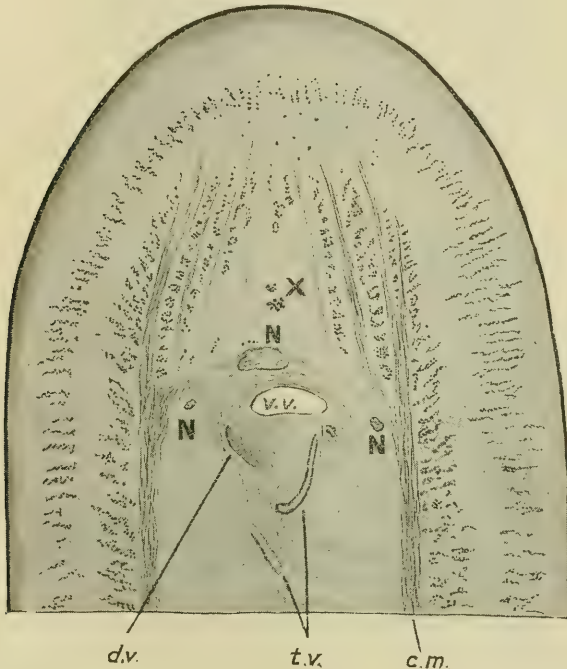 X
N
v.v.
N N
d.v. t.v. c.m.